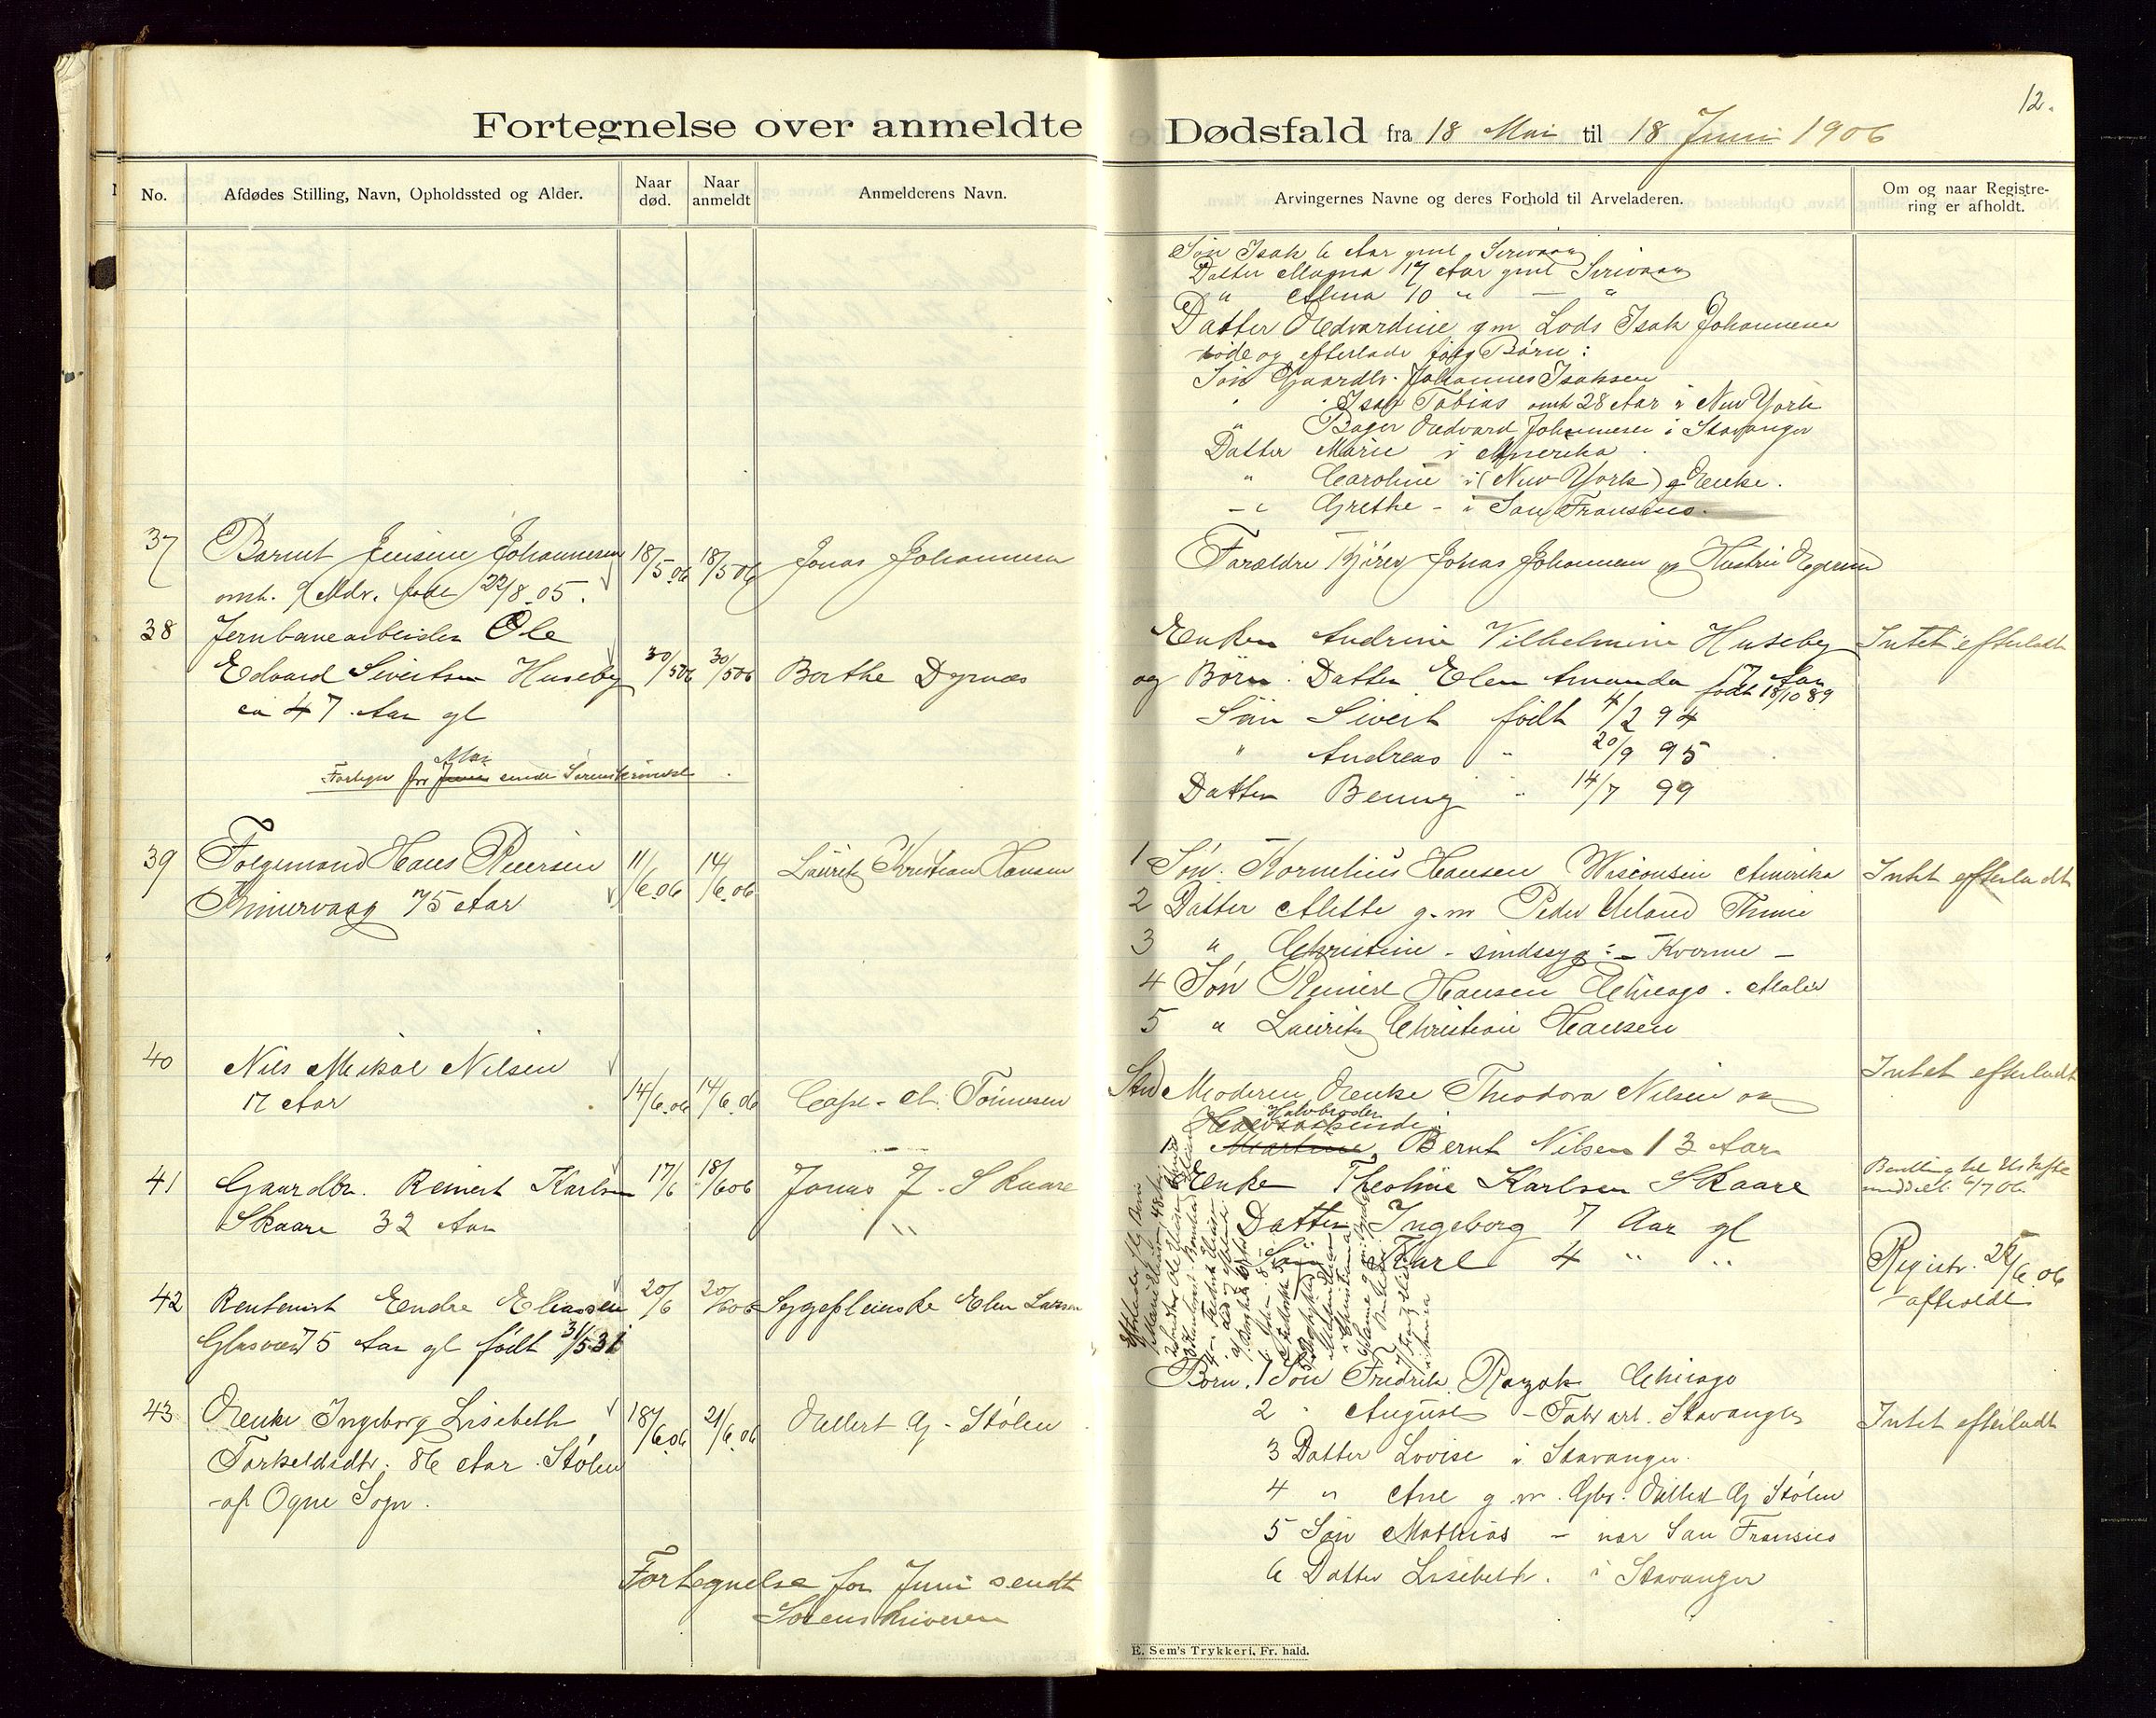 Fortegnelse over anmeldte
No.
Afdødes Stilling, Navn, Opholdssted og Alder.
Naar død.
Naar anmeldt
Anmelderens Navn.
37
Barnet Jensine Johannesen
omt. 9 Mdr. føde 22/8.05.
18/5.06
18/5 06
Jonas Johannesen
38
Jernbanearbeider Ole
Edvard Sivertsen Huseby
ca 47 Aar gl
30/5 06
30/5 06
Berthe Dyrnæs
Mai
for Juni sendt Sorenskriveren
39
Folgemand Hans Reiersen
75 Aar
11/6.06
14/6.06
Lauritz Kristian Hansen
40
Nils Mikal Nilsen
17 Aar
14/6.06
14/6.06
Tönnesen
41
Gaardbr. Reinert Karlsen
Skaare 32 Aar
17/6
18/6 06
Jonas J. Skaare
42
Rentenist Endre Eliassen
75 Aar gl født 31/5 31
20/6
20/6 06
Sygepleierske Elen Larsen
43
Enke Ingeborg Lisebeth
Torkeldsdtr. 86 Aar Stólen
af Ogne Sogn.
18/6.06
21/6.06
G. Stólen
Fortegnelse for Juni sendt
Sorenskriveren
Dødsfald fra 18 Mai til 18 Juni 1906
12.
Arvingernes Navne og deres Forhold til Arveladeren.
Om og naar Registrering er afholdt.
Søn Isak 6 Aar gml Sirevaag
Datter Magna 17 Aar gml Sirevaag
" Alma 10 " — "
Datter Edvardine g m Lods Isak Johannesen
døde og efterlod følg Børn:
Søn Gaardbr. Johannes Isaksen
" Isak Tobias omt 28 Aar i New York
" Bager Edvard Johannesen i Stavanger
Datter Marie i Amerika
" Caroline i (New York) Enke.
" Grethe - i San Fransisco.
Forældre Jonas Johannesen og Hustru Egersund
Enken Andrine Vilhelmine Huseby
og Børn: Datter Elen Amanda 17 Aar
født 18/10 89
Søn Sivert født 4/2 94
" Andreas " 20/9 95
Datter Benny " 14/7 99
Intet efterladt
1 Søn. Kornelius Hansen Wisconsin Amerika
2 Datter Alette g. m Peder Ueland Thime
3 " Christine - sindssyg - Kverme -
4 Søn Reinert Hansen Chicago. Maler
5 " Lauritz Christian Hansen
Intet efterladt
Moderen Enke Theodora Nilsen og
Halvbroder
1 Martine Bernt Nilsen 13 Aar
Intet efterladt
Enke Theoline Karlsen Skaare
Datter Ingeborg 7 Aar gl
Søn Karl 4 " "
Bevilling til Uskifte
meddelt 6/7 06.
Registr. 25/6.06
afholdt
Børn. 1 Søn Fredrik Chicago
2 " August - Stavanger
3 Datter Lovise i Stavanger.
4 " Ane g m. Gbr. G Stólen
5 Søn Mathias - nær San Fransisco
6 Datter Lisebeth. i Stavanger
Intet efterladt
E. Sem's Trykkeri, Fr. hald.